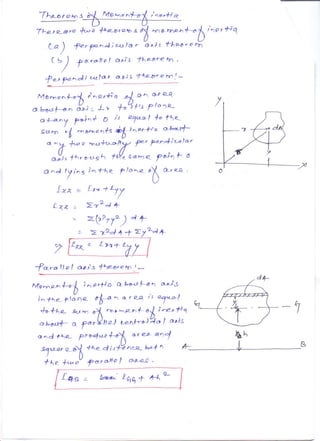 Theorems of Moment of inertia
There are two theorems of moment of inertia
(a) Perpendicular axis theorem.
(b) parallel axis theorem.
Perpendicular axis theorem:-
Moment of inertia of an area
about an axis Lr to its plane
at any point O is equal to the
sum of moments of inertia about
any two mutually perpendicular
axis through the same point O
and lying in the plane of area.
Izz = Ixx + Iyy
Izz = Σr²dA
= Σ(x²+y²) dA
= Σx²dA + Σy²dA
Izz = Ixx + Iyy
Parallel axis theorem:-
Moment of inertia about an axis
in the plane of an area is equal
to the sum of moment of inertia
about a parallel centroidal axis
and the product of area and
square of the distance both
the two parallel axes.
IAB = IGG + Ah²
y
x
dA
r
O
x
dA
G
y
G
h
A
B